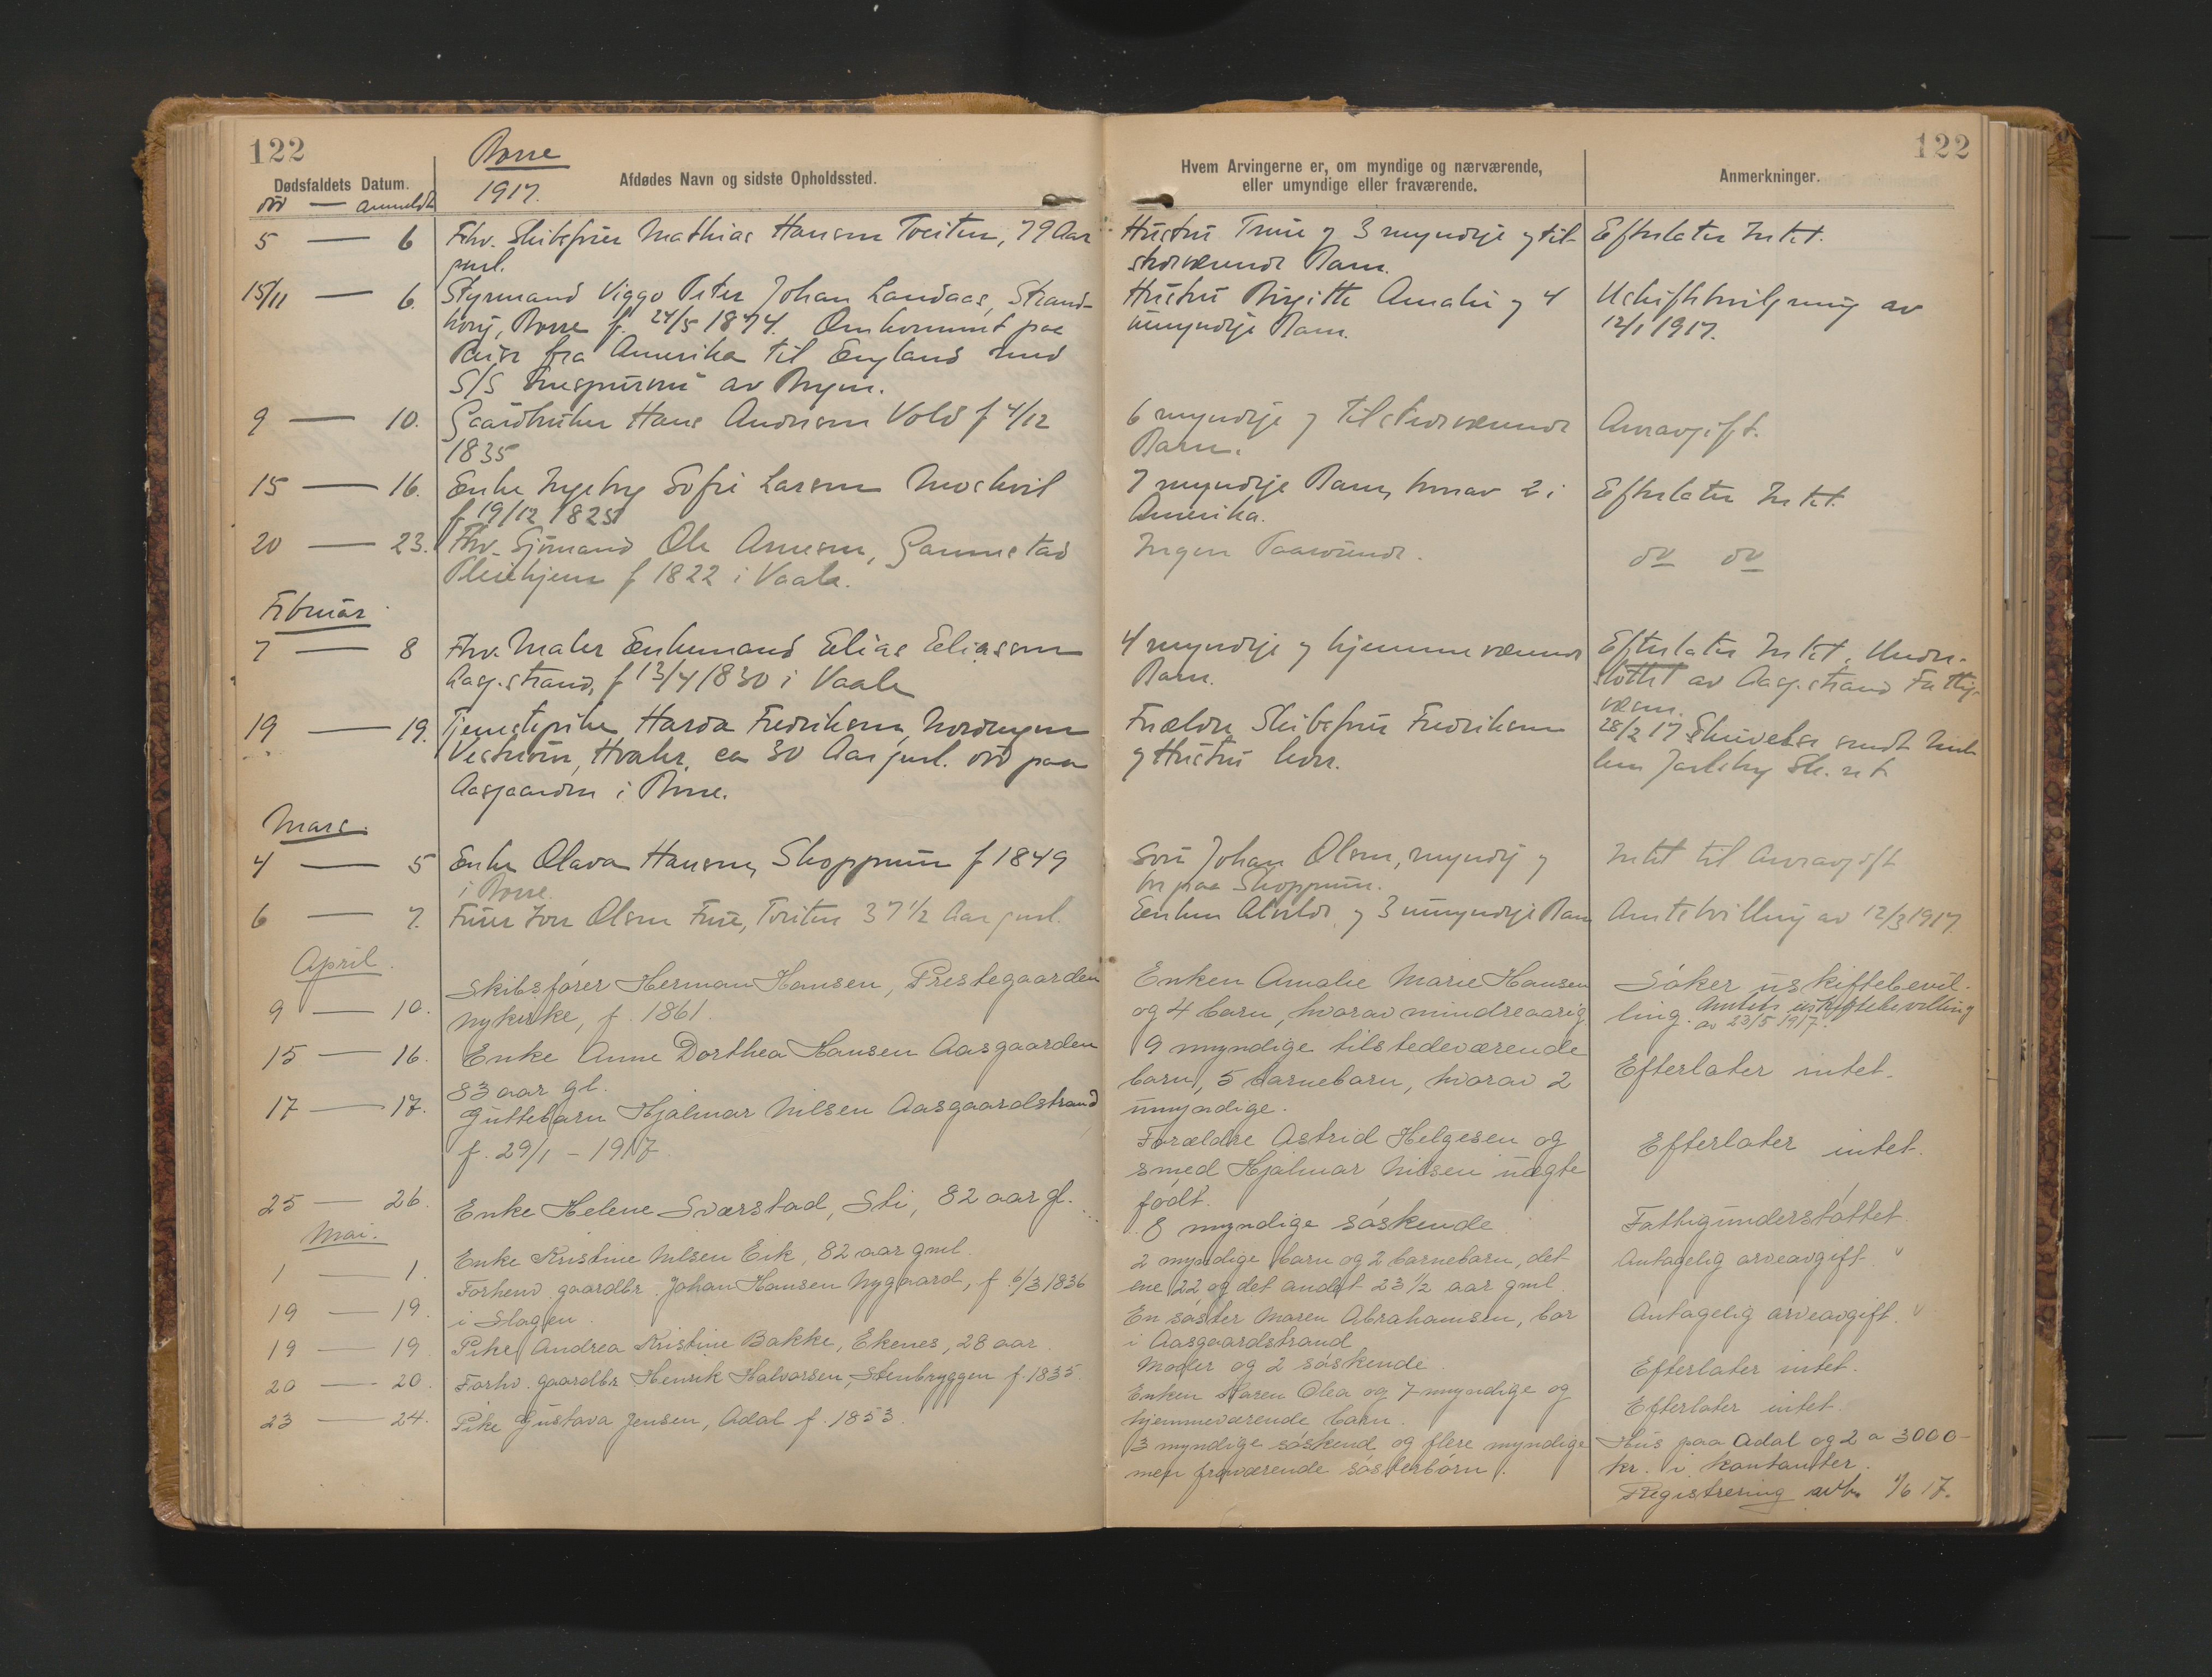 122
Borre
1917.
Dødsfaldets Datum.
død — anmeldt
Afdødes Navn og sidste Opholdssted.
Hvem Arvingerne er, om myndige og nærværende,
eller umyndige eller fraværende.
Anmerkninger.
122
5 — 6 Fhv. Skibsfører Mathias Hansen Tveiten, 79 Aar
gml.
Hustru Trine og 3 myndige og til-
stedeværende Barn.
Efterlater Intet.
15/11 — 6. Styrmand Viggo Peter Johan Landaas, Strand-
borg, Borre f. 24/5 1874. Omkommet paa
Reise fra Amerika til England med
S/S av Bergen.
Hustru Birgitte Amalie og 4
umyndige Barn.
Uskiftbevilgning av
12/1 1917.
9 — 10. Gaardbruker Hans Andersen Vold f 4/12
1835
6 myndige og tilstedeværende
Barn.
Arveavgift.
15 — 16. Enke Ingeborg Sofie Larsen
f 19/12 1825
7 myndige Barn, hvorav 2 i
Amerika.
Efterlater Intet.
20 — 23. Fhv. Sjømand Ole Arnesen, Gannestad
Pleiehjem f 1822 i Vaale.
Ingen Paarørende.
do do
Februar
7 — 8 Fhv. Maler Enkemand Elias Eliassen
Aasg.strand, f 13/4 1830 i Vaale
4 myndige og hjemmeværende
Barn.
Efterlater Intet. Under-
støttet av Aasg.strand Fattig-
væsen.
19 — 19. Tjenestepike Harda Fredriksen,
Hvaler, ca 30 Aar gml. død paa
Aasgaarden i Borre.
Forældre Skibsfører Fredriksen
og Hustru lever.
28/2 17 Skrivelse sendt
Jarlsberg Sk. ret
Mars.
4 — 5 Enke Olava Hansen, Skoppum f 1849
i Borre.
Søn Johan Olsen, myndig og
bor paa Skoppum.
Intet til Arveavgift
6 — 7. Olsen Tveiten 37 1/2 Aar gml.
Enken og 3 umyndige Barn
Amtsbevilling av 12/3 1917.
April.
9 — 10. Skibsfører Herman Hansen, Prestegaarden
Nykirke, f. 1861.
Enken Amalie Marie Hansen
og 4 barn, hvorav mindreaarig
Søker uskiftebevil-
ling. Amtets uskiftebevilling
av 23/5 1917.
15 — 16. Enke Anne Dorthea Hansen Aasgaarden
83 aar gl.
9 myndige tilstedeværende
barn, 5 barnebarn, hvorav 2
umyndige.
Efterlater intet.
17 — 17. Guttebarn Hjalmar Nilsen Aasgaardstrand
f. 29/1 - 1917.
Forældre Astrid Helgesen og
smed Hjalmar Nilsen uægte
født.
Efterlater intet.
25 — 26. Enke Helene Sværstad, Sti, 82 aar gl.
8 myndige søskende
Fattigunderstøttet
Mai.
1 — 1. Enke Kristine Nilsen Eik, 82 aar gml.
2 myndige barn og 2 barnebarn, det
ene 22 og det andet 23 1/2 aar gml
Antagelig arveavgift
19 — 19. Forhenv. gaardbr. Johan Hansen Nygaard, f. 6/3 1836
i Slagen.
En søster Maren Abrahamsen, bor
i Aasgaardstrand
Antagelig arveavgift.
19 — 19. Pike Andrea Kristine Bakke, Ekenes, 28 aar
Moder og 2 søskende.
Efterlater intet.
20 — 20. Forhv. gaardbr Henrik Halvorsen, Stenbryggen f. 1835.
Enken Karen Olea og 7 myndige og
hjemmeværende barn.
Efterlater intet.
23 — 24. Pike Gustava Jensen, Adal f. 1853.
3 myndige søskend og flere myndige
men fraværende søsterbørn.
Hus paa Adal og 2 a 3000-
kr. i kontanter.
Registrering 1/6 17.